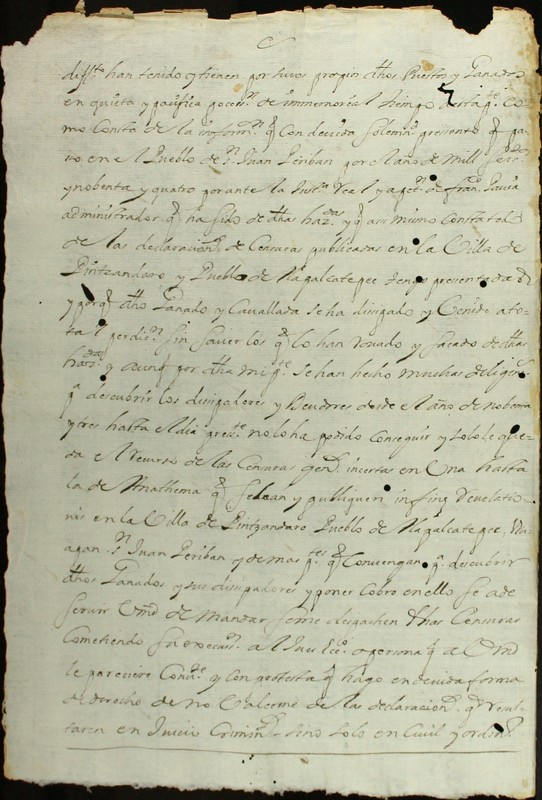 diffto han tenido y tienen por suios propios dhos Puestos y Ganados
en quieta y pacifica poceson de immemorial tiempo a esta pte Co
mo Consta de la informon q Con devida solemd presento q pa
so en el Pueblo de Sn Juan Periban por el año de Mill seisos
y nobenta y quatro por ante la Justa Real y a petn de Franco
administrador q ha sido de dhas hazdas y q asi mismo Consta
de las declaraciones de Censuras publicadas en la Villa de
Pintzandaro y Pueblo de Nagalcatepec
y porq dho Ganado y Cavallada se ha disipado y
tal perdion sin saver los q lo han rovado y sacado de dhas
hazdas y aunq por dha mi pte se han hecho muchas diligens
pa descubrir los disipadores y desde el año de nobenta
y tres hasta el dia preste no lo ha podido Conseguir y solo le que
da el recurso de las Censuras gens incertas en Una hasta
la de Anathema q se lean y publiquen in fine revelatio
nis en la Villa de Pintzandaro Pueblo de Nagalcatepec
Sn Juan Periban y demas ptes q Convengan pa descubrir
dhos Ganados y sus disipadores y poner Cobro en ello se a de
servir Vmd de Mandar se me despachen dhas Censuras
Cometiendo su execuon al Juez Ecco o persona q a Vmd
le pareciere Conte y con protesta q hago en devida forma
de derecho de no Valerme de las declaraciones q resul
taren en Juicio Criminl sino solo en Civil y ordino